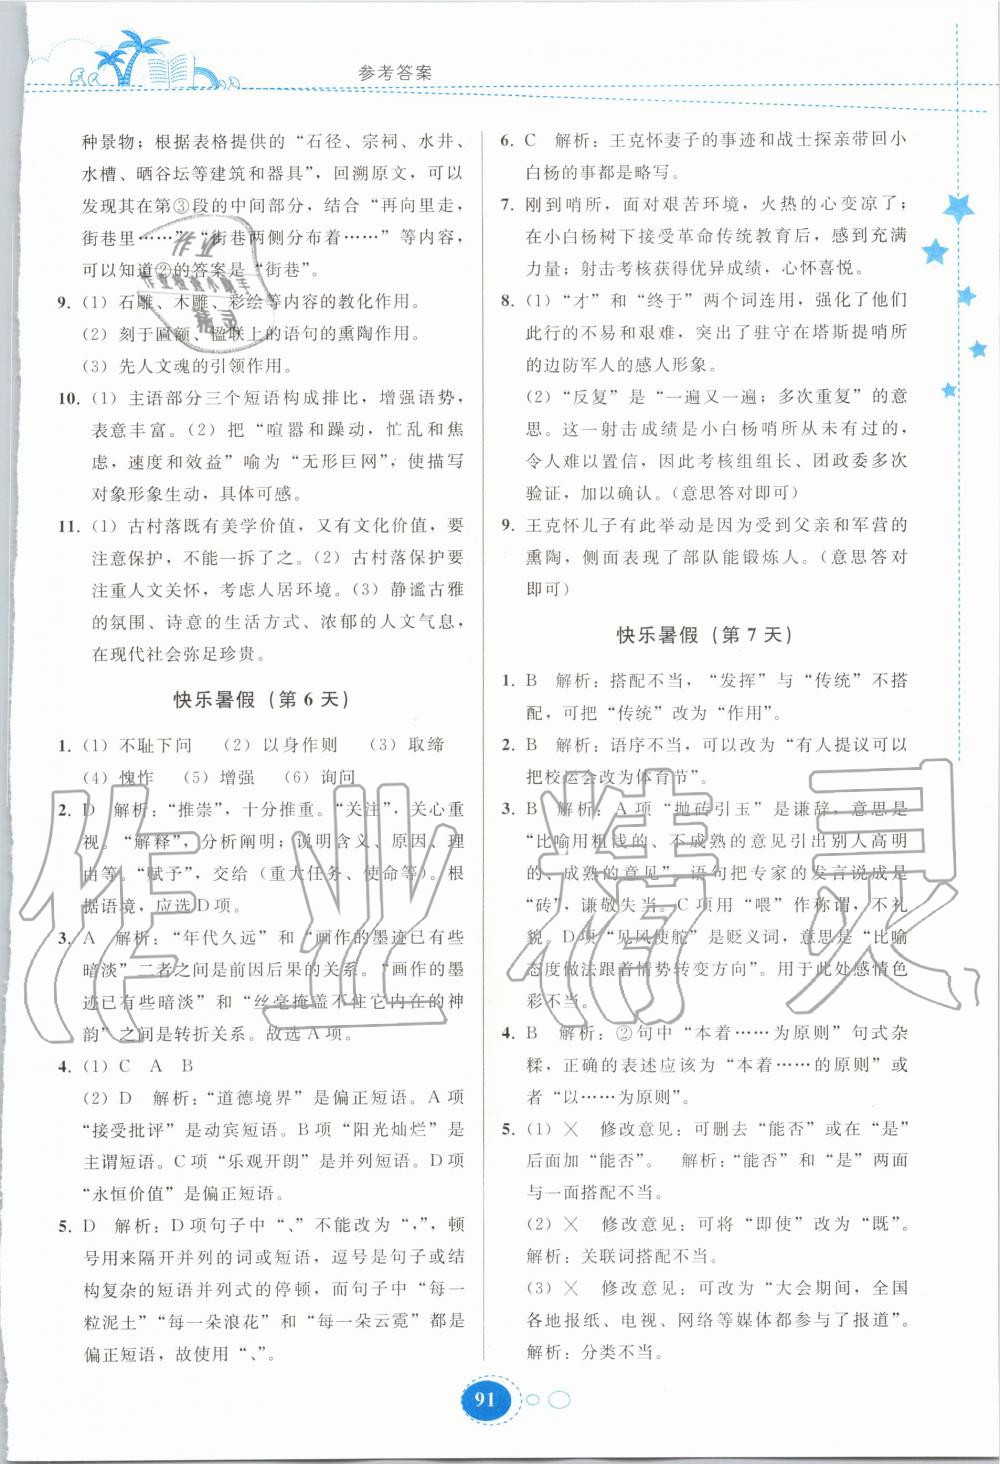 参考答案
种景物；根据表格提供的“石径、宗祠、水井、
水槽、晒谷坛等建筑和器具”，回溯原文，可以
发现其在第③段的中间部分，结合“再向里走，
街巷里……”“街巷两侧分布着……”等内容，
可以知道②的答案是“街巷”。
9. （1）石雕、木雕、彩绘等内容的教化作用。
（2）刻于匾额、楹联上的语句的熏陶作用。
（3）先人文魂的引领作用。
10. （1）主语部分三个短语构成排比，增强语势，
表意丰富。（2）把“喧嚣和躁动，忙乱和焦
虑，速度和效益”喻为“无形巨网”，使描写
对象形象生动，具体可感。
11. （1）古村落既有美学价值，又有文化价值，要
注意保护，不能一拆了之。（2）古村落保护要
注重人文关怀，考虑人居环境。（3）静谧古雅
的氛围、诗意的生活方式、浓郁的人文气息，
在现代社会弥足珍贵。
快乐暑假（第 6 天）
1. （1）不耻下问 （2）以身作则 （3）取缔
（4）愧怍 （5）增强 （6）询问
2. D 解析：“推崇”，十分推重。“关注”，关心重
视。“解释”，分析阐明；说明含义、原因、理
由等。“赋予”，交给（重大任务、使命等）。根
据语境，应选D项。
3. A 解析：“年代久远”和“画作的墨迹已有些
暗淡”二者之间是前因后果的关系。“画作的墨
迹已有些暗淡”和“丝毫掩盖不住它内在的神
韵”之间是转折关系。故选A项。
4. （1）C A B
（2）D 解析：“道德境界”是偏正短语。A项
“接受批评”是动宾短语。B项“阳光灿烂”是
主谓短语。C项“乐观开朗”是并列短语。D项
“永恒价值”是偏正短语。
5. D 解析：D项句子中“、”不能改为“，”，顿
号用来隔开并列的词或短语，逗号是句子或结
构复杂的短语并列式的停顿，而句子中“每一
粒泥土”“每一朵浪花”和“每一朵云霓”都是
偏正短语，故使用“、”。
6. C 解析：王克怀妻子的事迹和战士探亲带回小
白杨的事都是略写。
7. 刚到哨所，面对艰苦环境，火热的心变凉了；
在小白杨树下接受革命传统教育后，感到充满
力量；射击考核获得优异成绩，心怀喜悦。
8. （1）“才”和“终于”两个词连用，强化了他们
此行的不易和艰难，突出了驻守在塔斯提哨所
的边防军人的感人形象。
（2）“反复”是“一遍又一遍；多次重复”的意
思。这一射击成绩是小白杨哨所从未有过的，
令人难以置信，因此考核组组长、团政委多次
验证，加以确认。（意思答对即可）
9. 王克怀儿子有此举动是因为受到父亲和军营的
熏陶，侧面表现了部队能锻炼人。（意思答对
即可）
快乐暑假（第 7 天）
1. B 解析：搭配不当，“发挥”与“传统”不搭
配，可把“传统”改为“作用”。
2. B 解析：语序不当，可以改为“有人提议可以
把校运会改为体育节”。
3. B 解析：A项“抛砖引玉”是谦辞，意思是
“比喻用粗浅的、不成熟的意见引出别人高明
的、成熟的意见”，语句把专家的发言说成是
“砖”，谦敬失当。C项用“喂”作称谓，不礼
貌。D项“见风使舵”是贬义词，意思是“比喻
态度做法跟着情势转变方向”。用于此处感情色
彩不当。
4. B 解析：②句中“本着……为原则”句式杂
糅，正确的表述应该为“本着……的原则”或
者“以……为原则”。
5. （1）× 修改意见：可删去“能否”或在“是”
后面加“能否”。 解析：“能否”和“是”两面
与一面搭配不当。
（2）× 修改意见：可将“即使”改为“既”。
解析：关联词搭配不当。
（3）× 修改意见：可改为“大会期间，全国
各地报纸、电视、网络等媒体都参与了报道”。
解析：分类不当。
91
作业精灵